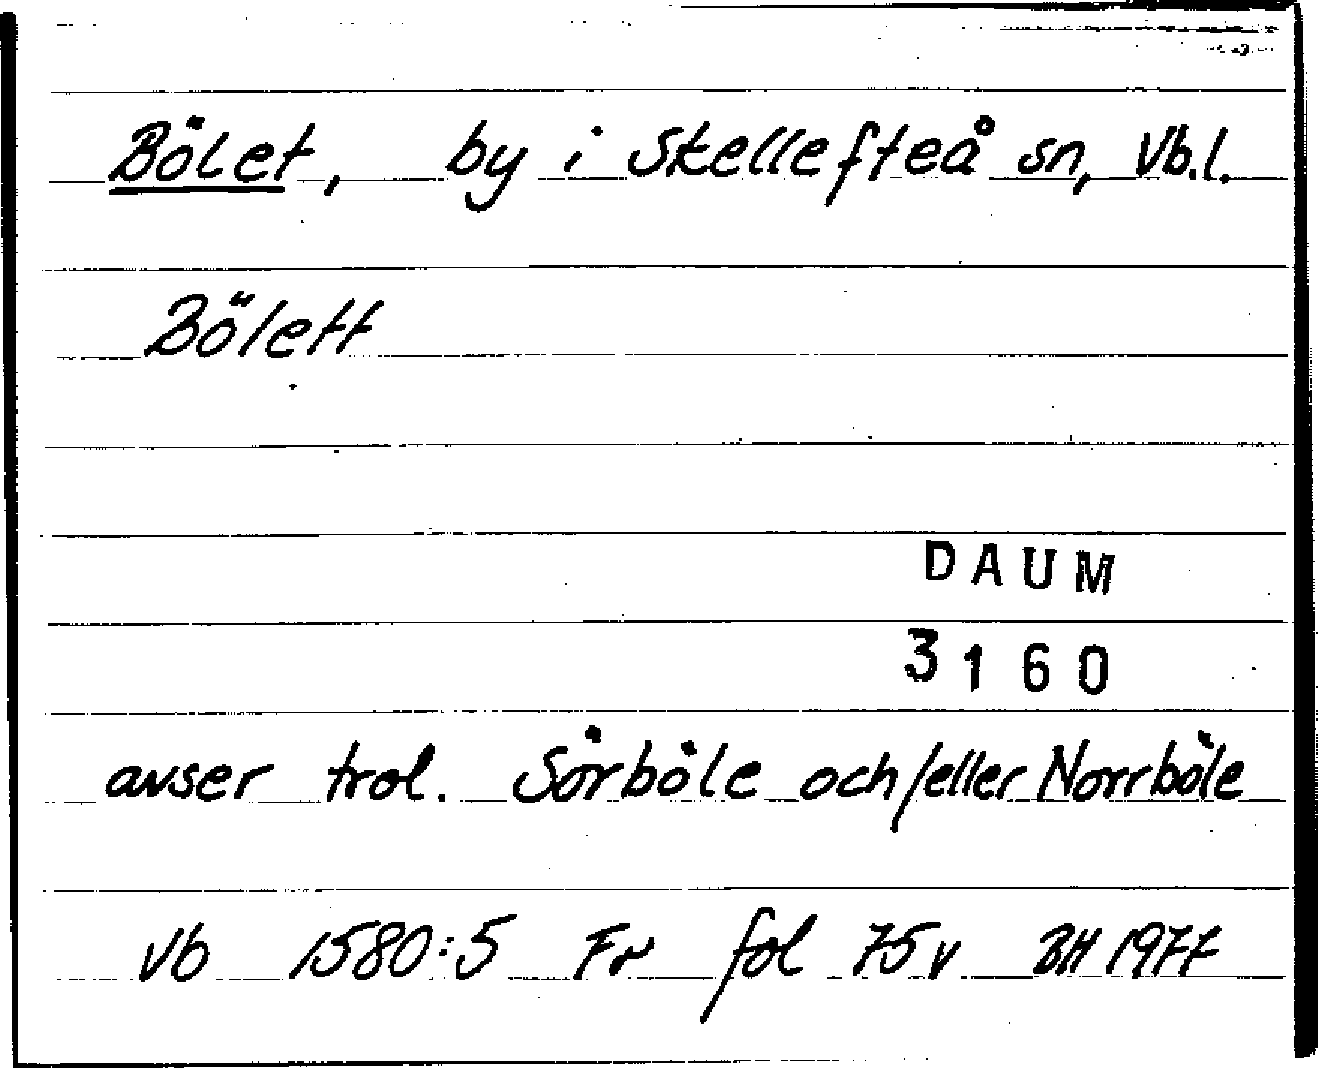 Bölet, by i Skellefteå sn, Vb.l.
Bölett
DAUM
3160
avser trol. Sörböle och/eller Norrböle
Vb 1580:5 Fr fol 75v BH 1977